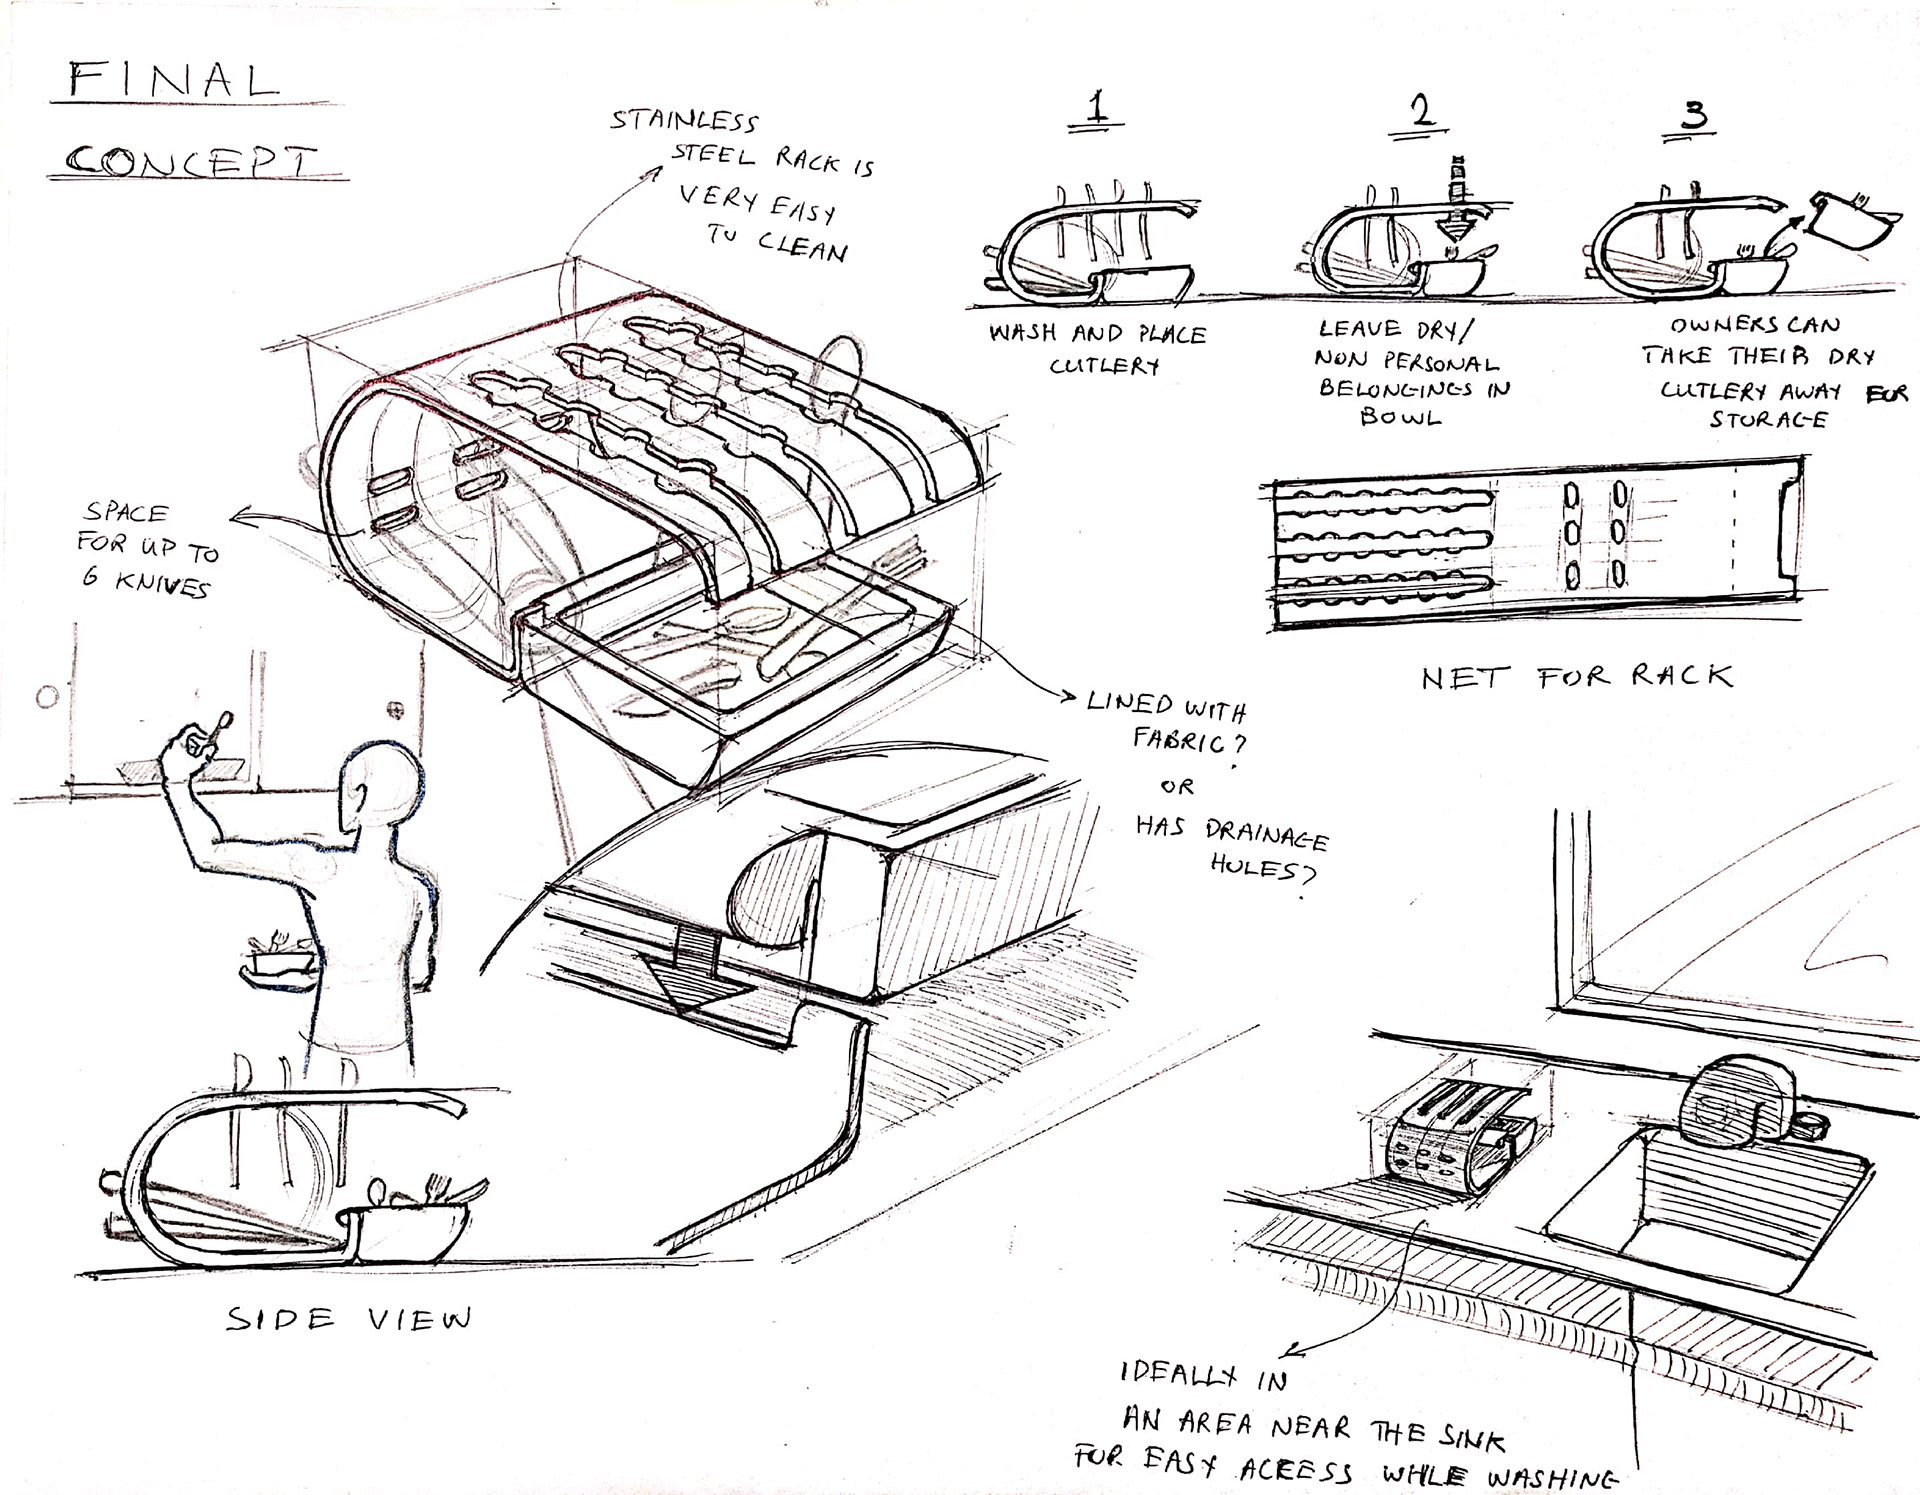 FINAL
CONCEPT
STAINLESS
STEEL RACK IS
VERY EASY
TO CLEAN
1
WASH AND PLACE
CUTLERY
2
LEAVE DRY/
NON PERSONAL
BELONGINGS IN
BOWL
3
OWNERS CAN
TAKE THEIR DRY
CUTLERY AWAY FOR
STORAGE
SPACE
FOR UP TO
6 KNIVES
NET FOR RACK
LINED WITH
FABRIC?
OR
HAS DRAINAGE
HOLES?
SIDE VIEW
IDEALLY IN
AN AREA NEAR THE SINK
FOR EASY ACCESS WHILE WASHING